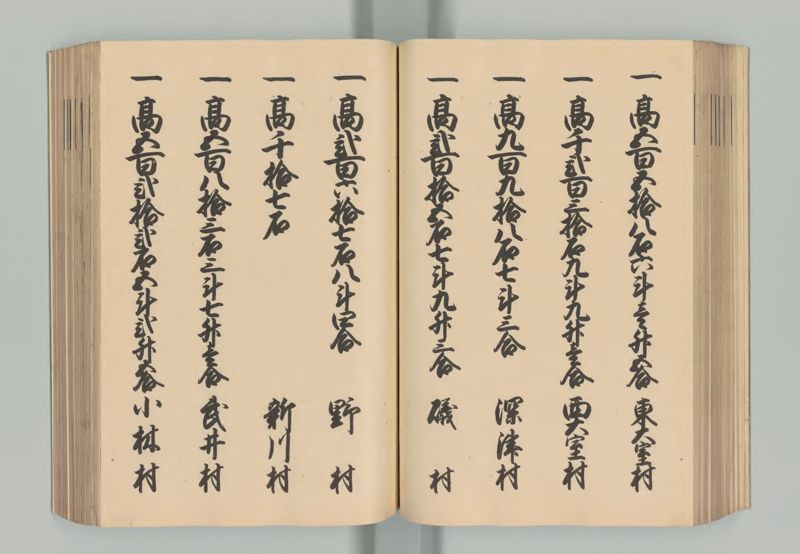 一 高五百五拾八石六斗壱升五合 東大室村
一 高千弐百三拾石九斗九升壱合 西大室村
一 高九百九拾八石七斗三合 深津村
一 高弐百拾五石七斗九升三合 礒村
一 高弐百六拾七石八斗四合 野村
一 高千拾七石 新川村
一 高五百八拾三石三斗七升壱合 武井村
一 高五百弐拾弐石五斗弐升五合 小林村